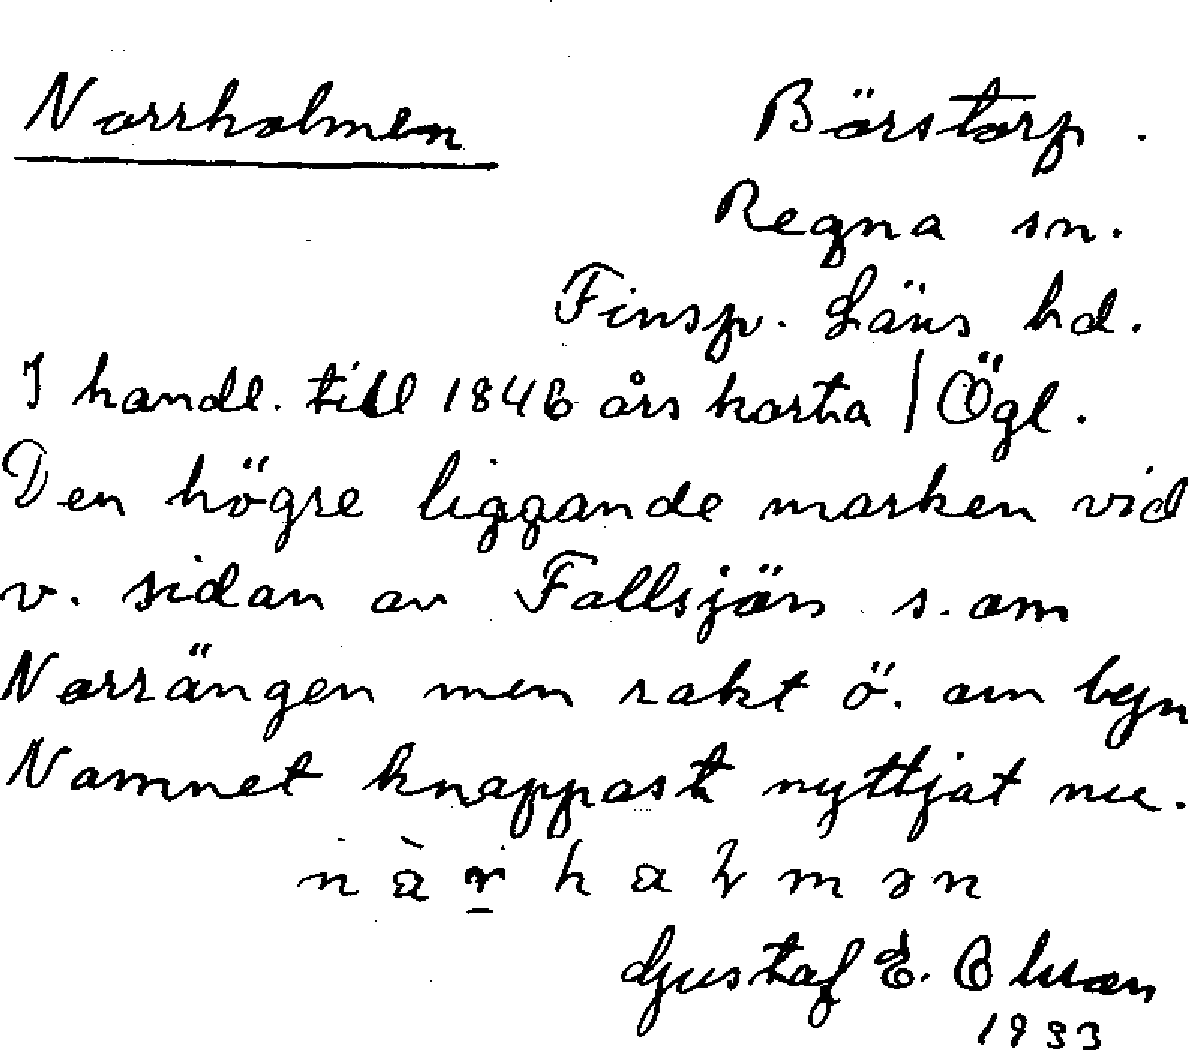 Norrholmen Börstorp.
Regna sn.
Finsp. Läns hd.
I handl. till 1846 års karta / Ögl.
Den högre liggande marken vid
v. sidan av Fallsjön s. om
Norrängen men rakt ö. om byn
Namnet knappast nyttjat nu.
Gustaf E. Olsson
1933